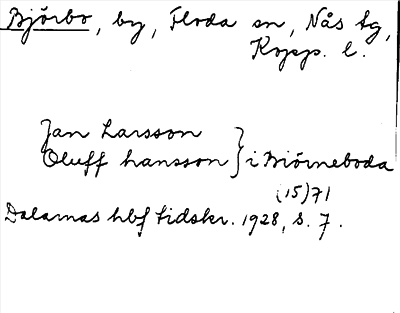 Björbo, by, Floda sn, Nås tg,
Kopp. l.
Jan Larsson
Oluff hansson } i Biörneboda
(15)71
Dalarnas hbf tidskr. 1928, s. 7.